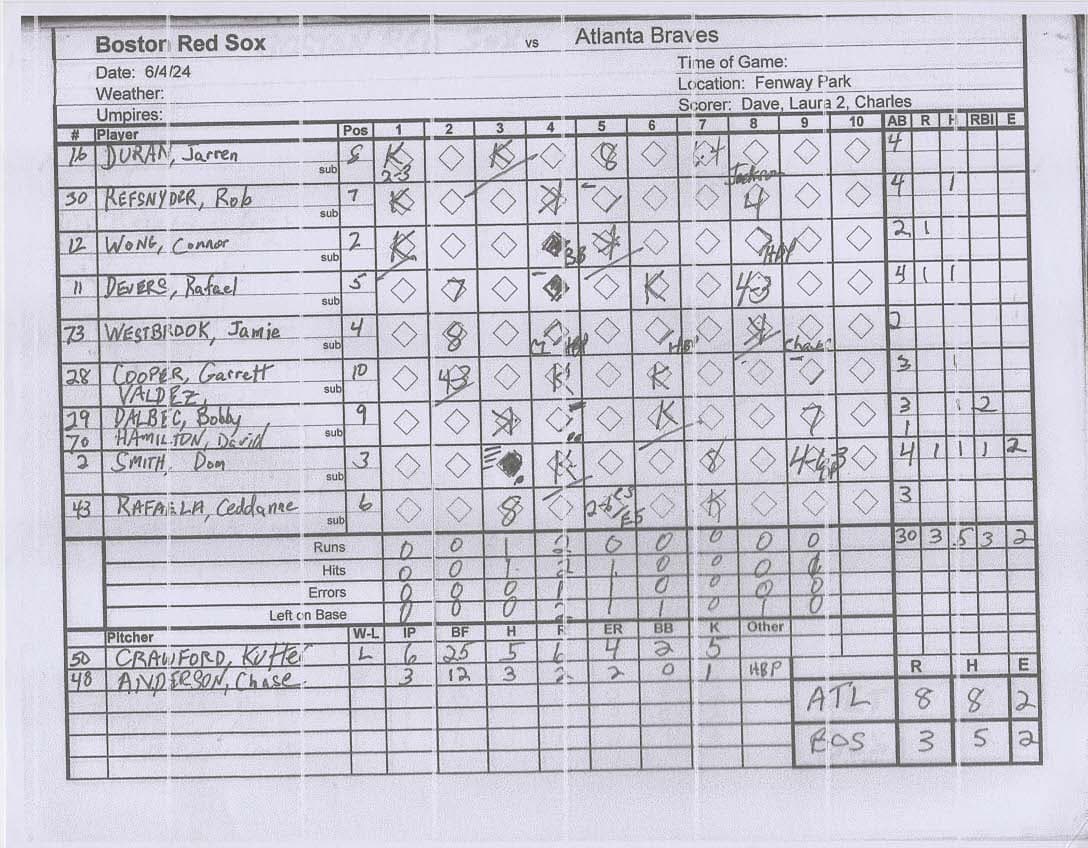 Boston Red Sox vs Atlanta Braves
Date: 6/4/24 Time of Game:
Weather: Location: Fenway Park
Umpires: Scorer: Dave, Laura 2, Charles
# Player Pos 1 2 3 4 5 6 7 8 9 10 AB R H RBI E
16 DURAN, Jarren sub 8 K 2-3 K 8 4
30 REFSNYDER, Rob sub 7 K Jackson 4 4 1
12 WONG, Connor sub 2 K BB HBP 2 1
11 DEVERS, Rafael sub 5 7 K 4-3 4 1 1
73 WESTBROOK, Jamie sub 4 8 HBP HBP 2
28 COOPER, Garrett sub 10 43 K K 3
VALDEZ,
29 DALBEC, Bobby 9 K 7 3 2
70 HAMILTON, David sub 1
2 SMITH, Dom sub 3 K 8 4-6-3 4 1 1 1 2
43 RAFAELA, Ceddanne sub 6 8 2-6 CS /E5 K 3
30 3 5 3 2
Runs 0 0 1 2 0 0 0 0 0
Hits 0 0 1 2 1 0 0 0
Errors 0 0 0 1 1 0 0 0 0
Left on Base 0 0 0 2 1 1 0 1 0
Pitcher W-L IP BF H R ER BB K Other
50 CRAWFORD, Kutter L 6 25 5 6 4 2 5
48 ANDERSON, Chase 3 12 3 2 2 0 1 HBP
R H E
ATL 8 8 2
BOS 3 5 2